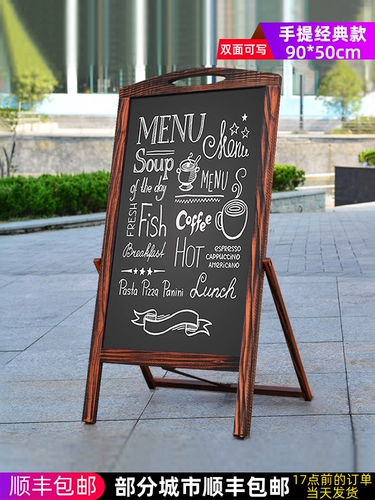 手提经典款
双面可写
90*50cm
MENU
Menu
Soup
of the day
MENU
FRESH
Fish
Coffee
Breakfast
HOT
ESPRESSO
CAPPUCCINO
AMERICANO
Pasta Pizza Panini
Lunch
顺丰包邮
部分城市顺丰包邮
17点前的订单
当天发货